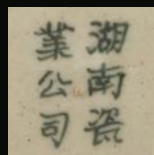 湖南瓷
業公司